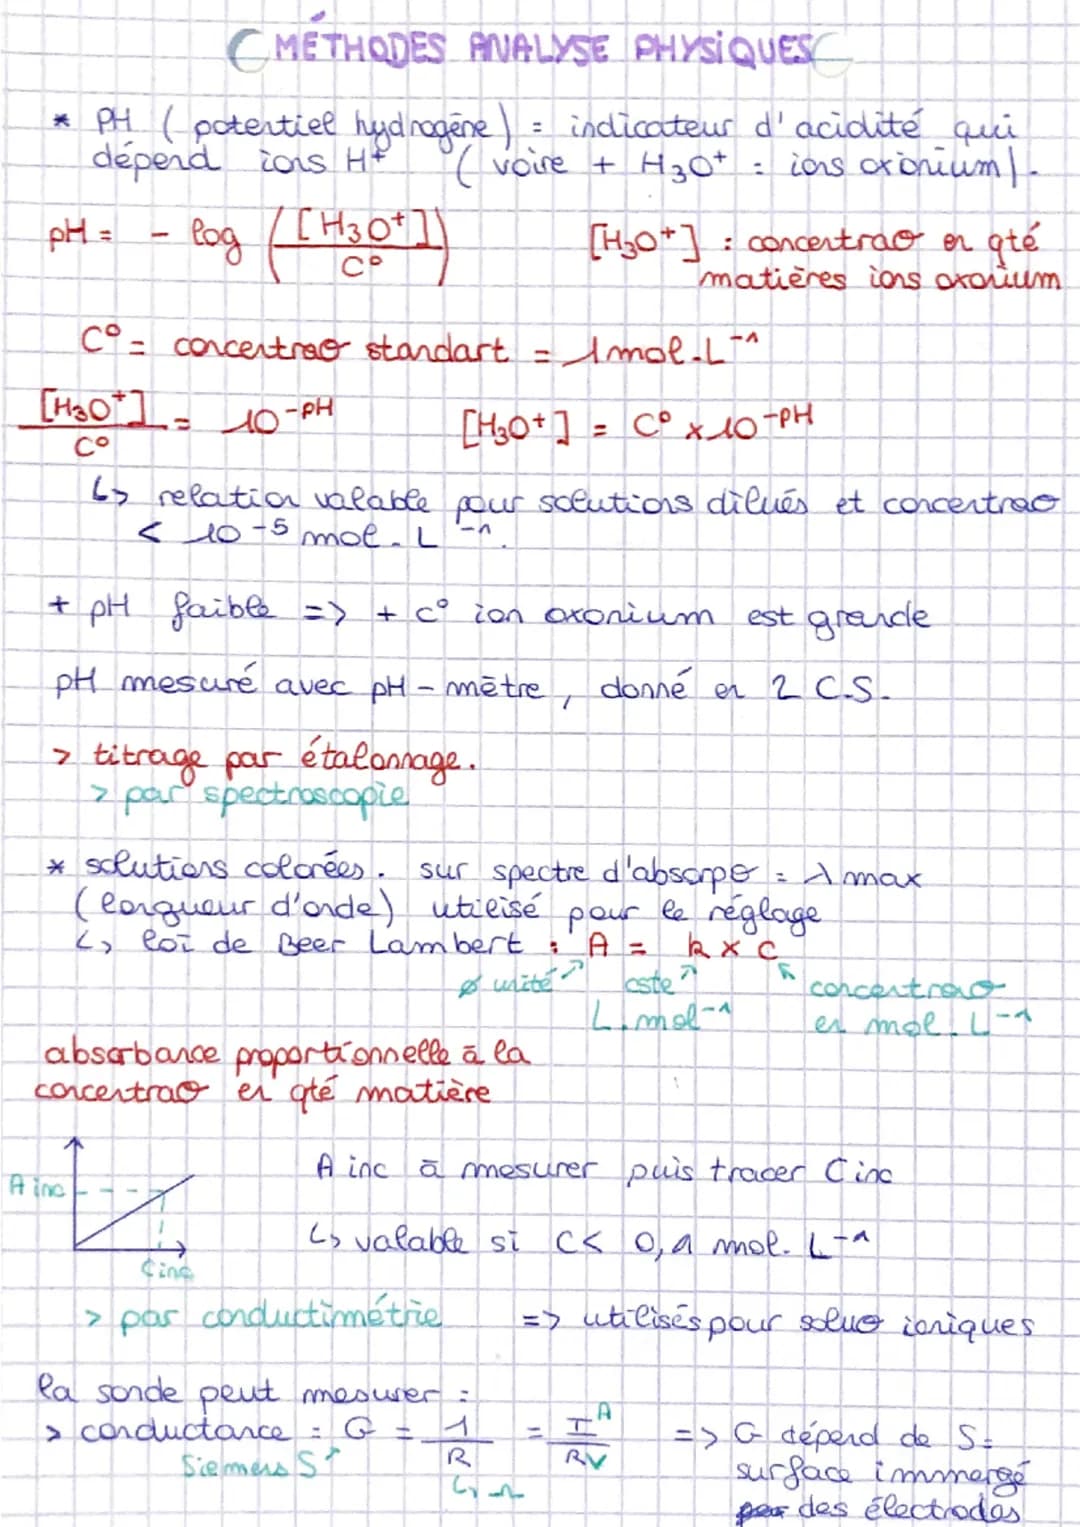 MÉTHODES ANALYSE PHYSIQUES
* PH (potentiel hydrogène) = indicateur d'acidité qui
dépend ions H+ (voire + H3O+ = ions oxionium).
pH = - log ([H3O+] / C°)
[H3O+] : concentrao en qté
matières ions oxonium
C° = concentrao standart = 1 mol.L-1
[H3O+] / C° = 10-PH
[H3O+] = C° x 10-PH
↳ relation valable pour solutions dilués et concentrao
< 10-5 mol.L-1.
+ pH faible => + c° ion oxonium est grande
pH mesuré avec pH-mètre, donné en 2 C.S.
> titrage par étalonnage.
> par spectroscopie
* solutions colorées. sur spectre d'absorpo = λ max
(longueur d'onde) utilisé pour le réglage
↳ loi de Beer Lambert : A = k x C
ø unité
cste
L.mol-1
concentrao
en mol.L-1
absorbance proportionnelle à la
concentrao en qté matière
A inc
C inc
A inc à mesurer puis tracer C inc
↳ valable si C< 0,1 mol.L-1
> par conductimétrie => utilisés pour soluo ioniques
la sonde peut mesurer :
> conductance = G = 1/R = I A / R V => G dépend de S =
Siemens S
↳ Ω
surface immergé
des électrodes